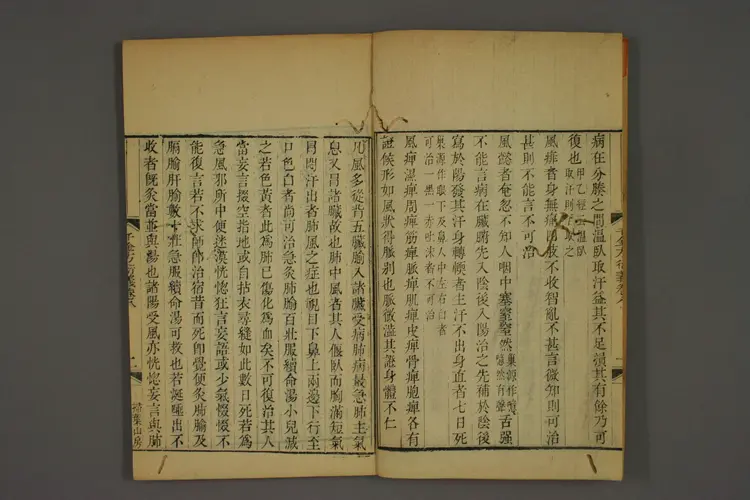 病在分腠之間溫臥取汗益其不足損其有餘乃可
復也甲乙經云溫臥取汗則巨取之
風痱者身無痛四肢不收智亂不甚言微知則可治
甚則不能言不可治
風懿者奄忽不知人咽中塞窒窒然巢源作噫噫然有聲舌强
不能言病在臟腑先入陰後入陽治之先補於陰後
寫於陽發其汗身轉軟者生汗不出身直者七日死
巢源作眼下及鼻人中左右白者可治一黑一赤吐沫者不可治
風痺濕痺周痺筋痺脈痺肌痺皮痺骨痺胞痺各有
證候形如風狀得脈別也脈微澁其證身體不仁
凡風多從背五臟腧入諸臟受病肺病最急肺主氣
息又冒諸臟故也肺中風者其人偃臥而胸滿短氣
冒悶汗出者肺風之症也視目下鼻上兩邊下行至
口色白者尚可治急灸肺腧百壯服續命湯小兒減
之若色黃者此為肺已傷化為血矣不可復治其人
當妄言掇空指地或自拈衣尋縫如此數日死若為
急風邪所中便迷漠恍惚狂言妄語或少氣惙惙不
能復言若不求師即治宿昔而死即覺便灸肺腧及
膈腧肝腧數十壯急服續命湯可救也若涎唾出不
收者既灸當並與湯也諸陽受風亦恍惚妄言與肺
千金方衍義卷八
掃葉山房